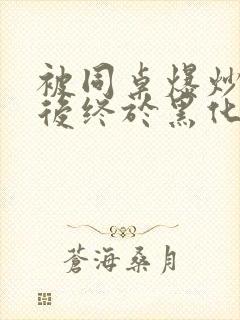 被同桌爆炒
後終於黑化
蒼海桑月